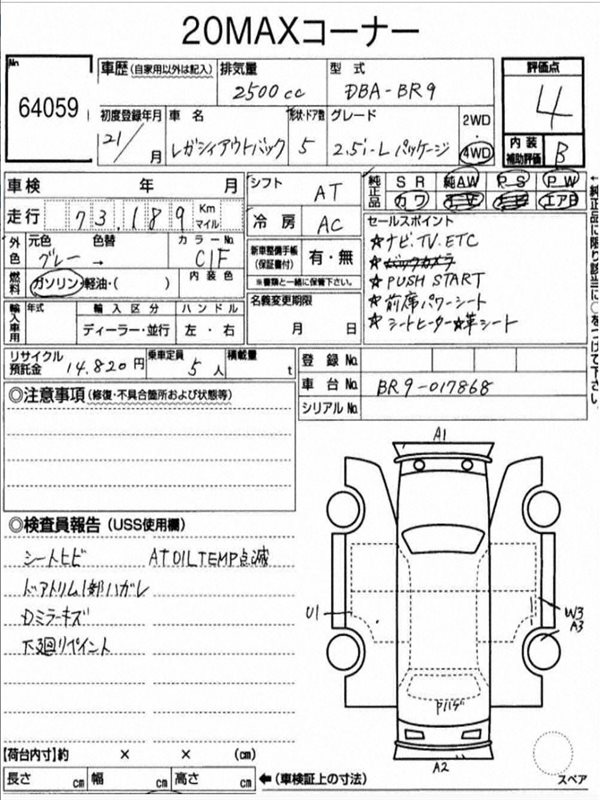 20MAXコーナー
No 64059
車歴 (自家用以外は記入) 排気量 2500cc 型式 DBA-BR9
評価点 4
初度登録年月 21/ 月 車名 レガシィアウトバック 形状・ドア数 5 グレード 2.5i-Lパッケージ 2WD・4WD
内装補助評価 B
車検 年 月 シフト AT 純正品 SR 純AW PS PW
カワ エアB
走行 73,189 Km マイル 冷房 AC
外色 元色 グレー 色替 → カラーNo. C1F 新車整備手帳(保証書付) 有・無
※書類と一緒に保管下さい。
セールスポイント
☆ナビ.TV.ETC
☆バックカメラ
☆PUSH START
☆前席パワーシート
☆シートヒーター☆革シート
燃料 ガソリン・軽油・( ) 内装色 名義変更期限 月 日
輸入車用 年式 輸入区分 ハンドル
ディーラー・並行 左・右
リサイクル預託金 14,820円 乗車定員 5人 積載量 t
登録No.
車台No. BR9-017868
シリアルNo.
←純正品に限り該当に○をつけて下さい。
◎注意事項 (修復・不具合箇所および状態等)
◎検査員報告 (USS使用欄)
シートヒビ ATOILTEMP点滅
ドアトリム1部ハガレ
Dミラーキズ
下廻りペイント
A1
U1
W3
A3
A2
【荷台内寸】約 × × (cm)
長さ cm 幅 cm 高さ cm ←(車検証上の寸法)
スペア